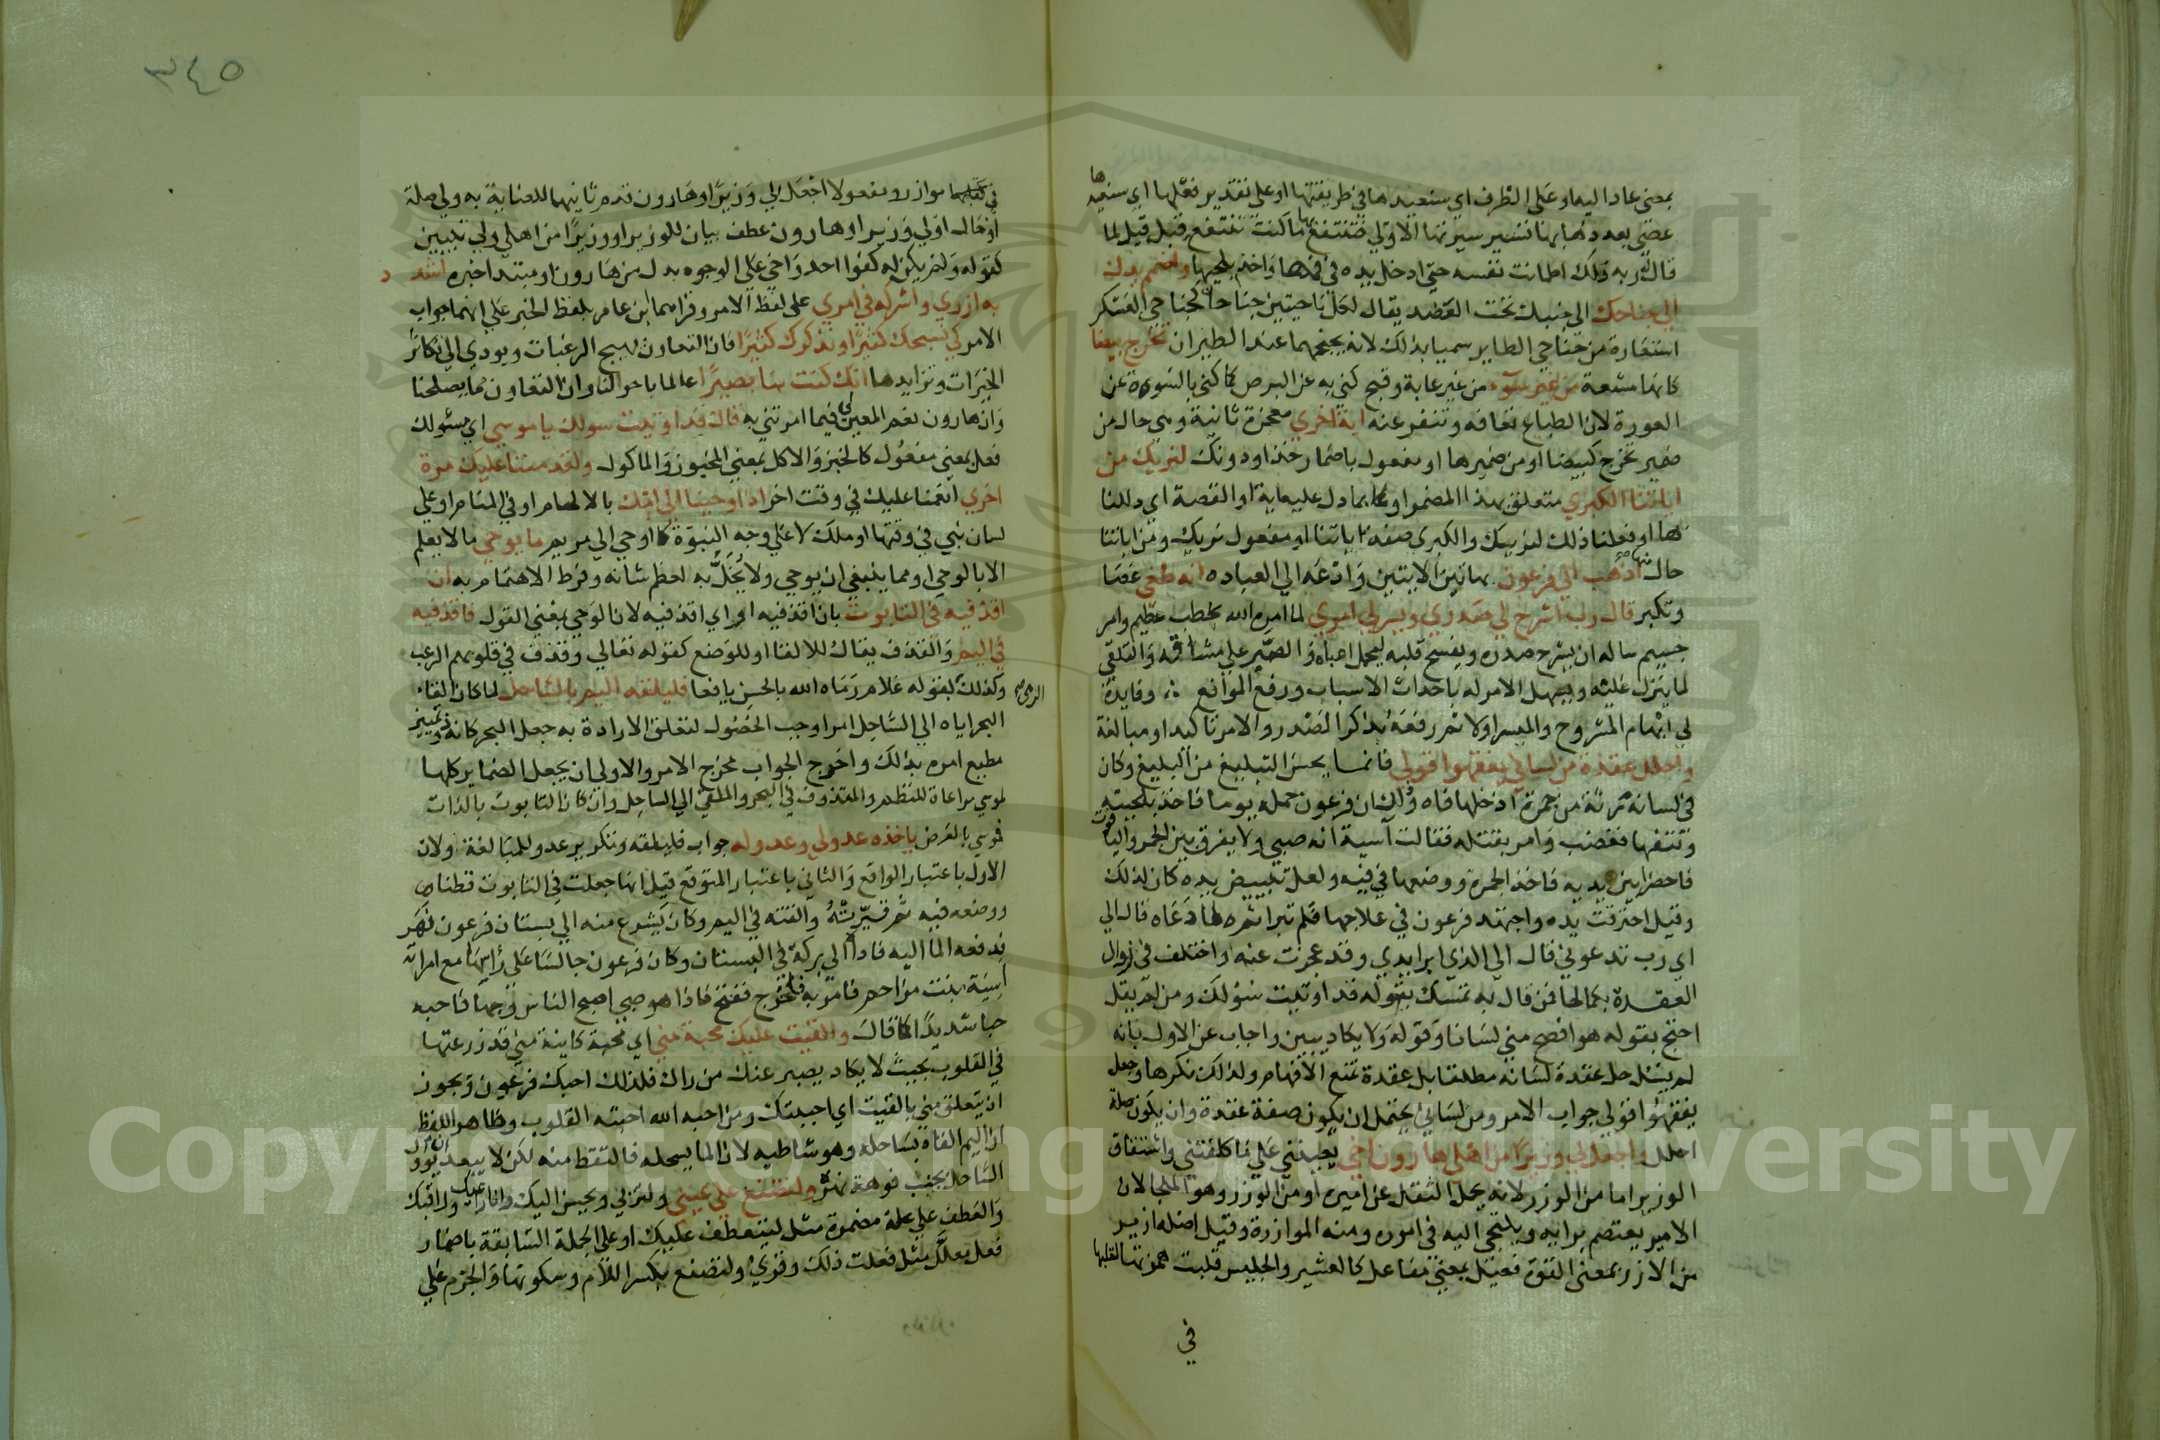 بمعنى عاد اليه او على الظرف اي سنعيدها في طريقتها او على تقدير فعلها اي سنعيد ها
عصى بعد ذهابها تسير سيرتها الاولى فتنتفع بها ما كنت تنتفع قبل قيل لما
قال له ربه ذلك اطمانت نفسه حتى ادخل يده في فمها واخذ بلحييها واضمم يدك
الى جناحك الى جنبك تحت العضد يقال لكل ناحيتين جناحان كجناحي العسكر
استعارة من جناحي الطاير سميا بذلك لانه يجنحهما عند الطيران تخرج بيضا
كانها مشعة من غير سوء من غير عابة وقبح كني به عن البرص كما كني بالسوءة عن
العورة لان الطباع تعافه وتنفر عنه اية اخري معجزة ثانية وهي حال من
ضمير تخرج كبيضا او من ضميرها او مفعول باضمار خذ او دونك لنريك من
اياتنا الكبري متعلق بهذا المضمر او بما دل عليه اية او القصة اي دللنا
بها او فعلنا ذلك لنريك والكبرى صفة اياتنا او مفعول نريك ومن اياتنا
حال منها اذهب الي فرعون بهاتين الايتين وادعه الي العباده انه طغى عصا
وتكبر قال رب اشرح لي صدري ويسر لي امري لما امره الله بخطب عظيم وامر
جسيم ساله ان يشرح صدره ويفسح قلبه لتحمل اعبائه والصبر على مشاقه والتلقي
لما ينزل عليه ويسهل الامر له باحداث الاسباب ورفع الموانع وفايدة
لي ابهام المشروح والميسر اولا ثم رفعه بذكر الصدر والامر تاكيدا ومبالغة
واحلل عقدة من لساني يفقهوا قولي فانما يحسن التبليغ من البليغ وكان
في لسانه رتة من جمرة ادخلها فاه وذلك ان فرعون حمله يوما فاخذ بلحيته
ونتفها فغضب وامر بقتله فقالت آسية انه صبي ولا يفرق بين الجمر والياقوت
فاحضرا بين يديه فاخذ الجمرة ووضعها في فيه ولعل تبييض يده كان لذلك
وقيل احترقت يده واجتهد فرعون في علاجها فلم تبرا ثم لما دعاه قال الي
اي رب تدعوني قال الي الذي ابرا يدي وقد عجزت عنه واختلف في زوال
العقدة بكمالها فمن قال به تمسك بقوله قد اوتيت سؤلك ومن لم يقل
احتج بقوله هو افصح مني لسانا وقوله ولا يكاد يبين واجاب عن الاول بانه
لم يسئل حل عقدة لسانه مطلقا بل عقدة تمنع الافهام ولذلك نكرها وجعل
يفقهوا قولي جواب الامر ومن لساني يحتمل ان يكون صفة عقدة وان يكون صلة
احلل واجعل لي وزيرا من اهلي هارون اخي يعينني علي ما كلفتني واشتقاق
الوزير اما من الوزر لانه يحمل الثقل عن اميره او من الوزر وهو الملجا لان
الامير يعتصم برايه ويلتجي اليه في اموره ومنه الموازرة وقيل اصله ازير
من الازر بمعنى القوة فعيل بمعنى مفاعل كالعشير والجليس قلبت همزتها لقلبها
في
٣٤٥
في موازر ومفعولا اجعل لي وزيرا وهارون قدم ثانيهما للعناية به ولي صلة
او حال او لي وزيرا وهارون عطف بيان للوزير او وزيرا من اهلي ولي تبيين
كقوله ولم يكن له كفوا احد واخي على الوجوه بدل من هارون او مبتدا خبره اشدد
به ازري واشركه في امري على لفظ الامر وقراهما ابن عامر بلفظ الخبر علي انهما جواب
الامر كي نسبحك كثيرا ونذكرك كثيرا فان التعاون يهيج الرغبات ويودي الي تكاثر
الخيرات وتزايدها انك كنت بنا بصيرا عالما باحوالنا وان التعاون مما يصلحنا
وان هارون نعم المعين لي فيما امرتني به قال قد اوتيت سولك يا موسي اي مسئولك
فعل بمعنى مفعول كالخبز والاكل بمعنى المخبوز والماكول ولقد مننا عليك مرة
اخري انعمنا عليك في وقت اخر اذ اوحينا الي امك بالالهام او في المنام او على
لسان نبي في وقتها او ملك لا علي وجه النبوة كما اوحي الي مريم ما يوحي ما لا يعلم
الا بالوحي او مما ينبغي ان يوحي ولا يخل به لعظم شانه وفرط الاهتمام به ان
اقذفيه في التابوت بان اقذفيه او اي اقذفيه لان الوحي بمعنى القول فاقذفيه
في اليم والقذف يقال للالقا او للوضع كقوله تعالي وقذف في قلوبهم الرعب
وكذلك الرمي كقوله غلام رماه الله بالحسن يافعا فليلقه اليم بالساحل لما كان القاء
البحر اياه الي الساحل امرا وجب الحصول لتعلق الارادة به جعل البحر كانه ذو تمييز
مطيع امره بذلك واخرج الجواب مخرج الامر والاولي ان يجعل الضماير كلها
لموسي مراعاة للنظم والمقذوف في البحر والملقى الي الساحل وان كان التابوت بالذات
فموسي بالعرض ياخذه عدو لي وعدو له جواب فليلقه وتكرير عدو للمبالغة ولان
الاول باعتبار الواقع والثاني باعتبار المتوقع قيل انها جعلت في التابوت قطنا
ووضعه فيه ثم قيرته والقته في اليم وكان يشرع منه الي بستان فرعون نهر
فدفعه الما اليه فاداه الي بركة في البستان وكان فرعون جالسا على راسها مع امراته
اسية بنت مزاحم فامر به فاخرج ففتح فاذا هو صبي اصبح الناس وجها فاحبه
حبا شديدا كما قال والقيت عليك محبة مني اي محبة كاينة مني قد زرعتها
في القلوب بحيث لا يكاد يصبر عنك من راك فلذلك احبك فرعون ويجوز
ان يتعلق مني بالقيت اي احببتك ومن احبه الله احبته القلوب وظاهر اللفظ
ان اليم القاه بساحله وهو شاطيه لان الما يسحله فالتقط منه لكن لا يبعد ان يوول
الساحل بجنب فوهة نهره ولتصنع على عيني ولتربي ويحسن اليك وانا راعيك وراقبك
والعطف على علة مضمرة مثل ليتعطف عليك او على الجملة السابقة باضمار
فعل معلل مثل فعلت ذلك وقري ولتصنع بكسر اللام وسكونها والجزم على
Copyright © King Saud University